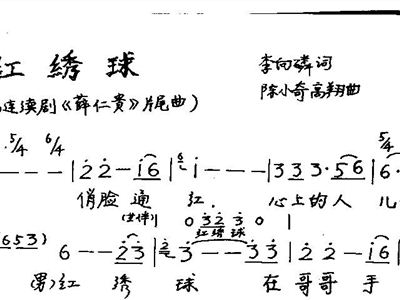 红绣球
李向磷词
连续剧《薛仁贵》片尾曲)
陈小奇高翔曲
5/4 6/4 5/4
- - - | 2 2 - i6 | i - - - | 3 3 3 · 56 | 6 ·
俏脸通 红. 心上的人 儿
(女伴) 0 3 2 3 0
红绣球
653) 6 - - 23 | 3 - - 3 3 3 | 2 2 - i6 | i
男)红 绣 球 在哥哥手